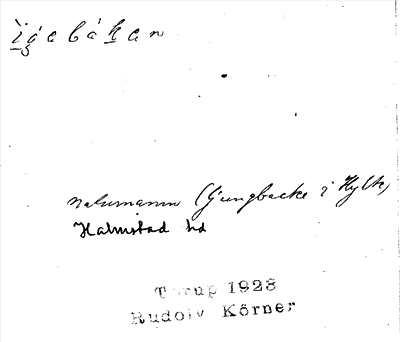 ìgəbákən
naturnamn (Ljungbacke i Hylte)
Halmstad hd
Torup 1928
Rudolv Körner